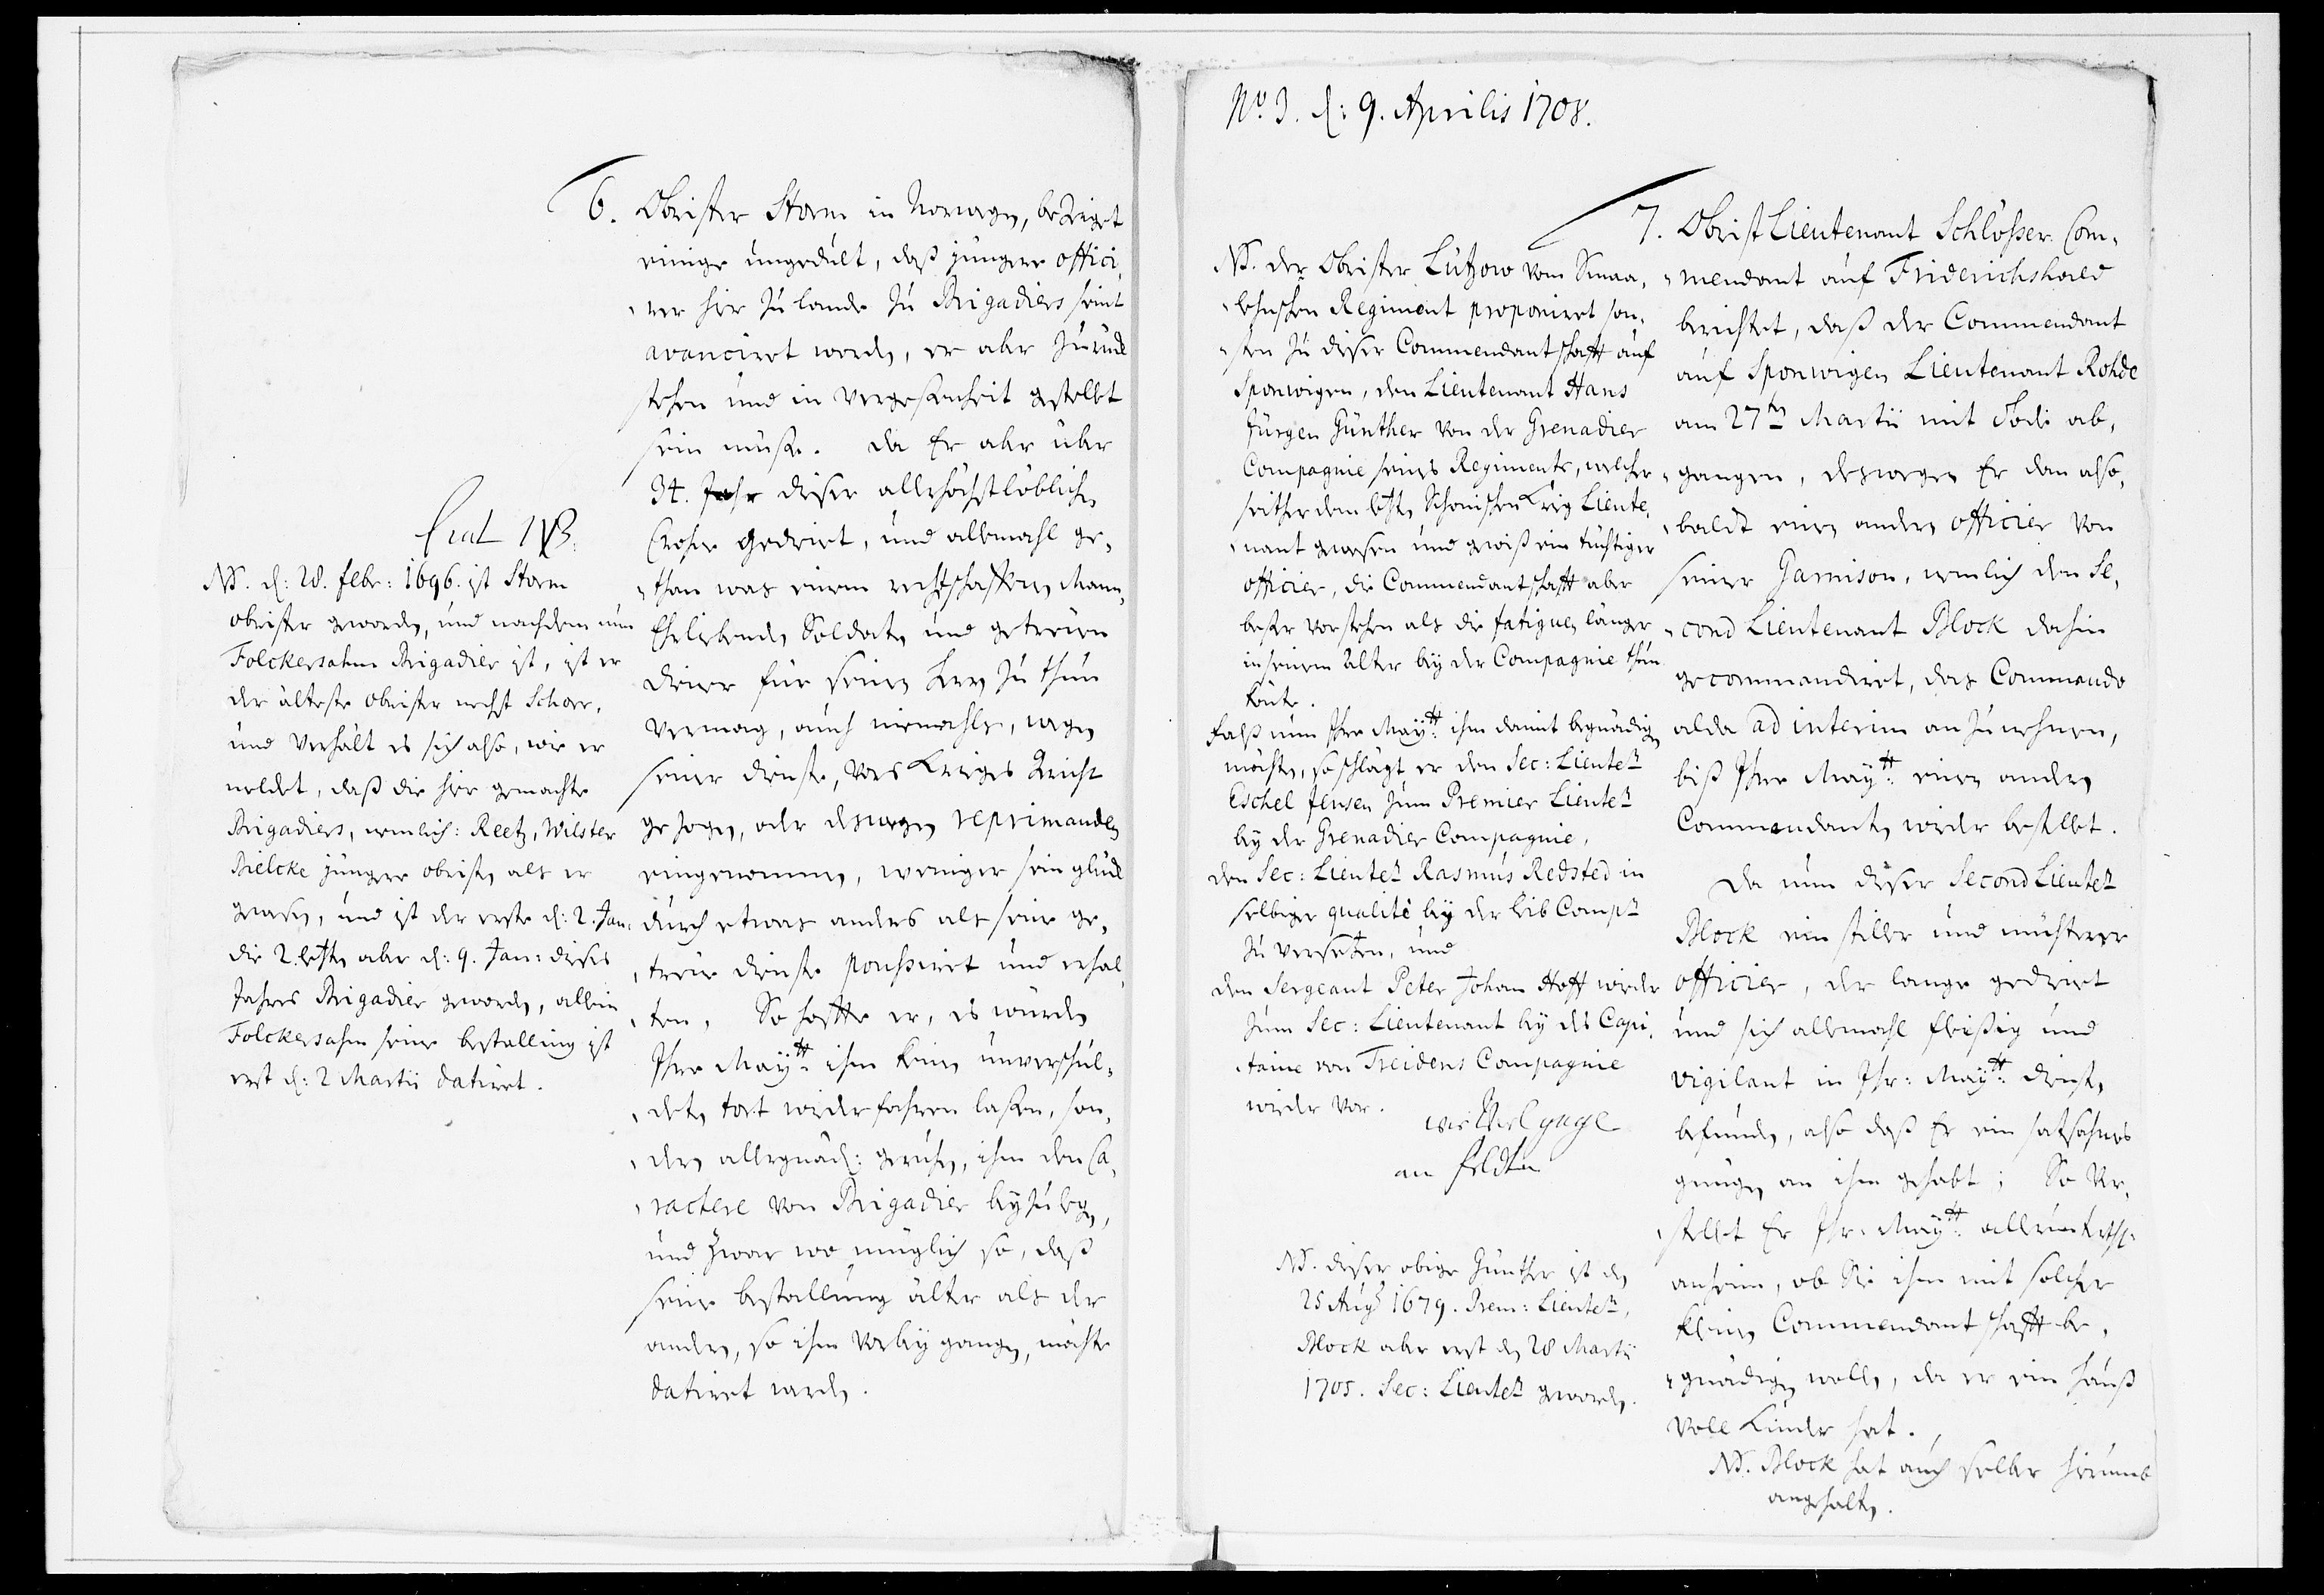 6. Obrister Storm in Norwegen, bezeiget
einige ungedult, daß jüngere offici,
rer hier zu lande zu Brigadiers seint
avanciret worden, er aber zurück
stehen und in vergeßenheit gestellet
sein müße. da Er aber über
34. Jahr dieser allerhöchstlöblichen
Crohne gedienet, und allemahl ge,
than was einem rechtschaffenen Mann,
Ehrliebenden Soldaten und getreüen
diener für seinen Herrn zu thun
vermag, auch niemahls, wegen
seiner dienste, vors Krieges Gericht
gezogen, oder deswegen reprimanden
eingenommen, weniger sein glück
durch etwas anders als seine ge,
treüe dienste poussiret und erhal,
ten, So hoffte er, es würden
Ihre Mayt. ihm keinen unverschul,
deten tort wiederfahren laßen, son,
dern allergnäd: geruhen, ihm den Ca,
ractere von Brigadier beyzulegen,
und zwar wo müglich so, daß
seine bestallung älter als der
andern, so ihm vorbey gangen, möchte
datiret werden.
NB. d: 28. febr: 1696. ist Storm
obrister geworden, und nachdem nun
Folckersahm Brigadier ist, ist er
der älteste obrister nechst Schorr,
und verhält es sich also, wie er
meldet, daß die hier gemachte
Brigadiers, nemlich: Reetz, Wilster
Bielcke jüngere obristen als er
gewesen, und ist der erste d: 2. Jan:
die 2. letzten aber d: 9. Jan: dieses
Jahres Brigadier geworden, allein
Folckersahm seine bestallung ist
erst d: 2 Martii datiret.
No. 3. d: 9. Aprilis 1708.
7. Obrist Lieutenant Schlößer Com,
mendant auf Friderichshald
berichtet, daß der Commendant
auf Sponwigen Lieutenant Rohde
am 27ten Martii mit Tode ab,
gangen, deswegen Er dan also,
baldt einen andern officier von
seiner Garnison, nemlich den Se,
cond Lieutenant Block dahin
gecommandiret, das Commando
alda ad interim anzunehmen,
biß Ihre Mayt. einen andern
Commendanten wieder bestellet.
Da nun dieser Second Lieutent
Block ein stiller und nüchterer
officier, der lange gedienet
und sich allemahl fleißig und
vigilant in Ihr: Mayt. dienst,
befunden, also daß Er ein satsahmes
gnügen an ihm gehabt; So Ver,
stellet Er Ihr: Mayt. allerunterth:
anheim, ob Sie ihm mit solcher
kleinen Commendantschafft be,
gnädigen wollen, da er ein hauß
voll Kinder hat.
NB. Block hat auch selber hierumb
angehalten.
NB. der Obrister Lützow vom Smaa,
lehnschen Regiment proponiret son,
sten zu dieser Commendantschafft auf
Sponwigen, den Lieutenant Hans
Jürgen Günther von der Grenadier
Compagnie seines Regiments, welcher
seither dem letzten Schonischen Krieg Liente,
nant gewesen und gewiß ein tüchtiger
officier, die Commendantschafft aber
beßer vorstehen als die fatiguen länger
in seinem Alter bey der Compagnie thun
konte.
Falß nun Ihre Mayt. ihm damit begnädigen
möchten, so schlägt er den Sec: Lieutent
Eschel Jensen zum Premier Lieutent
bey der Grenadier Compagnie,
den Sec: Lieutent Rasmus Redsted in
selbiger qualitè bey der leib Compt
zu versetzen, und
den Sergeant Peter Johan Hoff wieder
zum Sec: Lieutenant bey des Capi,
taine von Treidens Compagnie
wieder vor.
NB. dieser obige Günther ist den
25 Aug. 1679. Prem: Lieutent,
Block aber erst den 28 Martii
1705. Sec: Lieutent geworden.